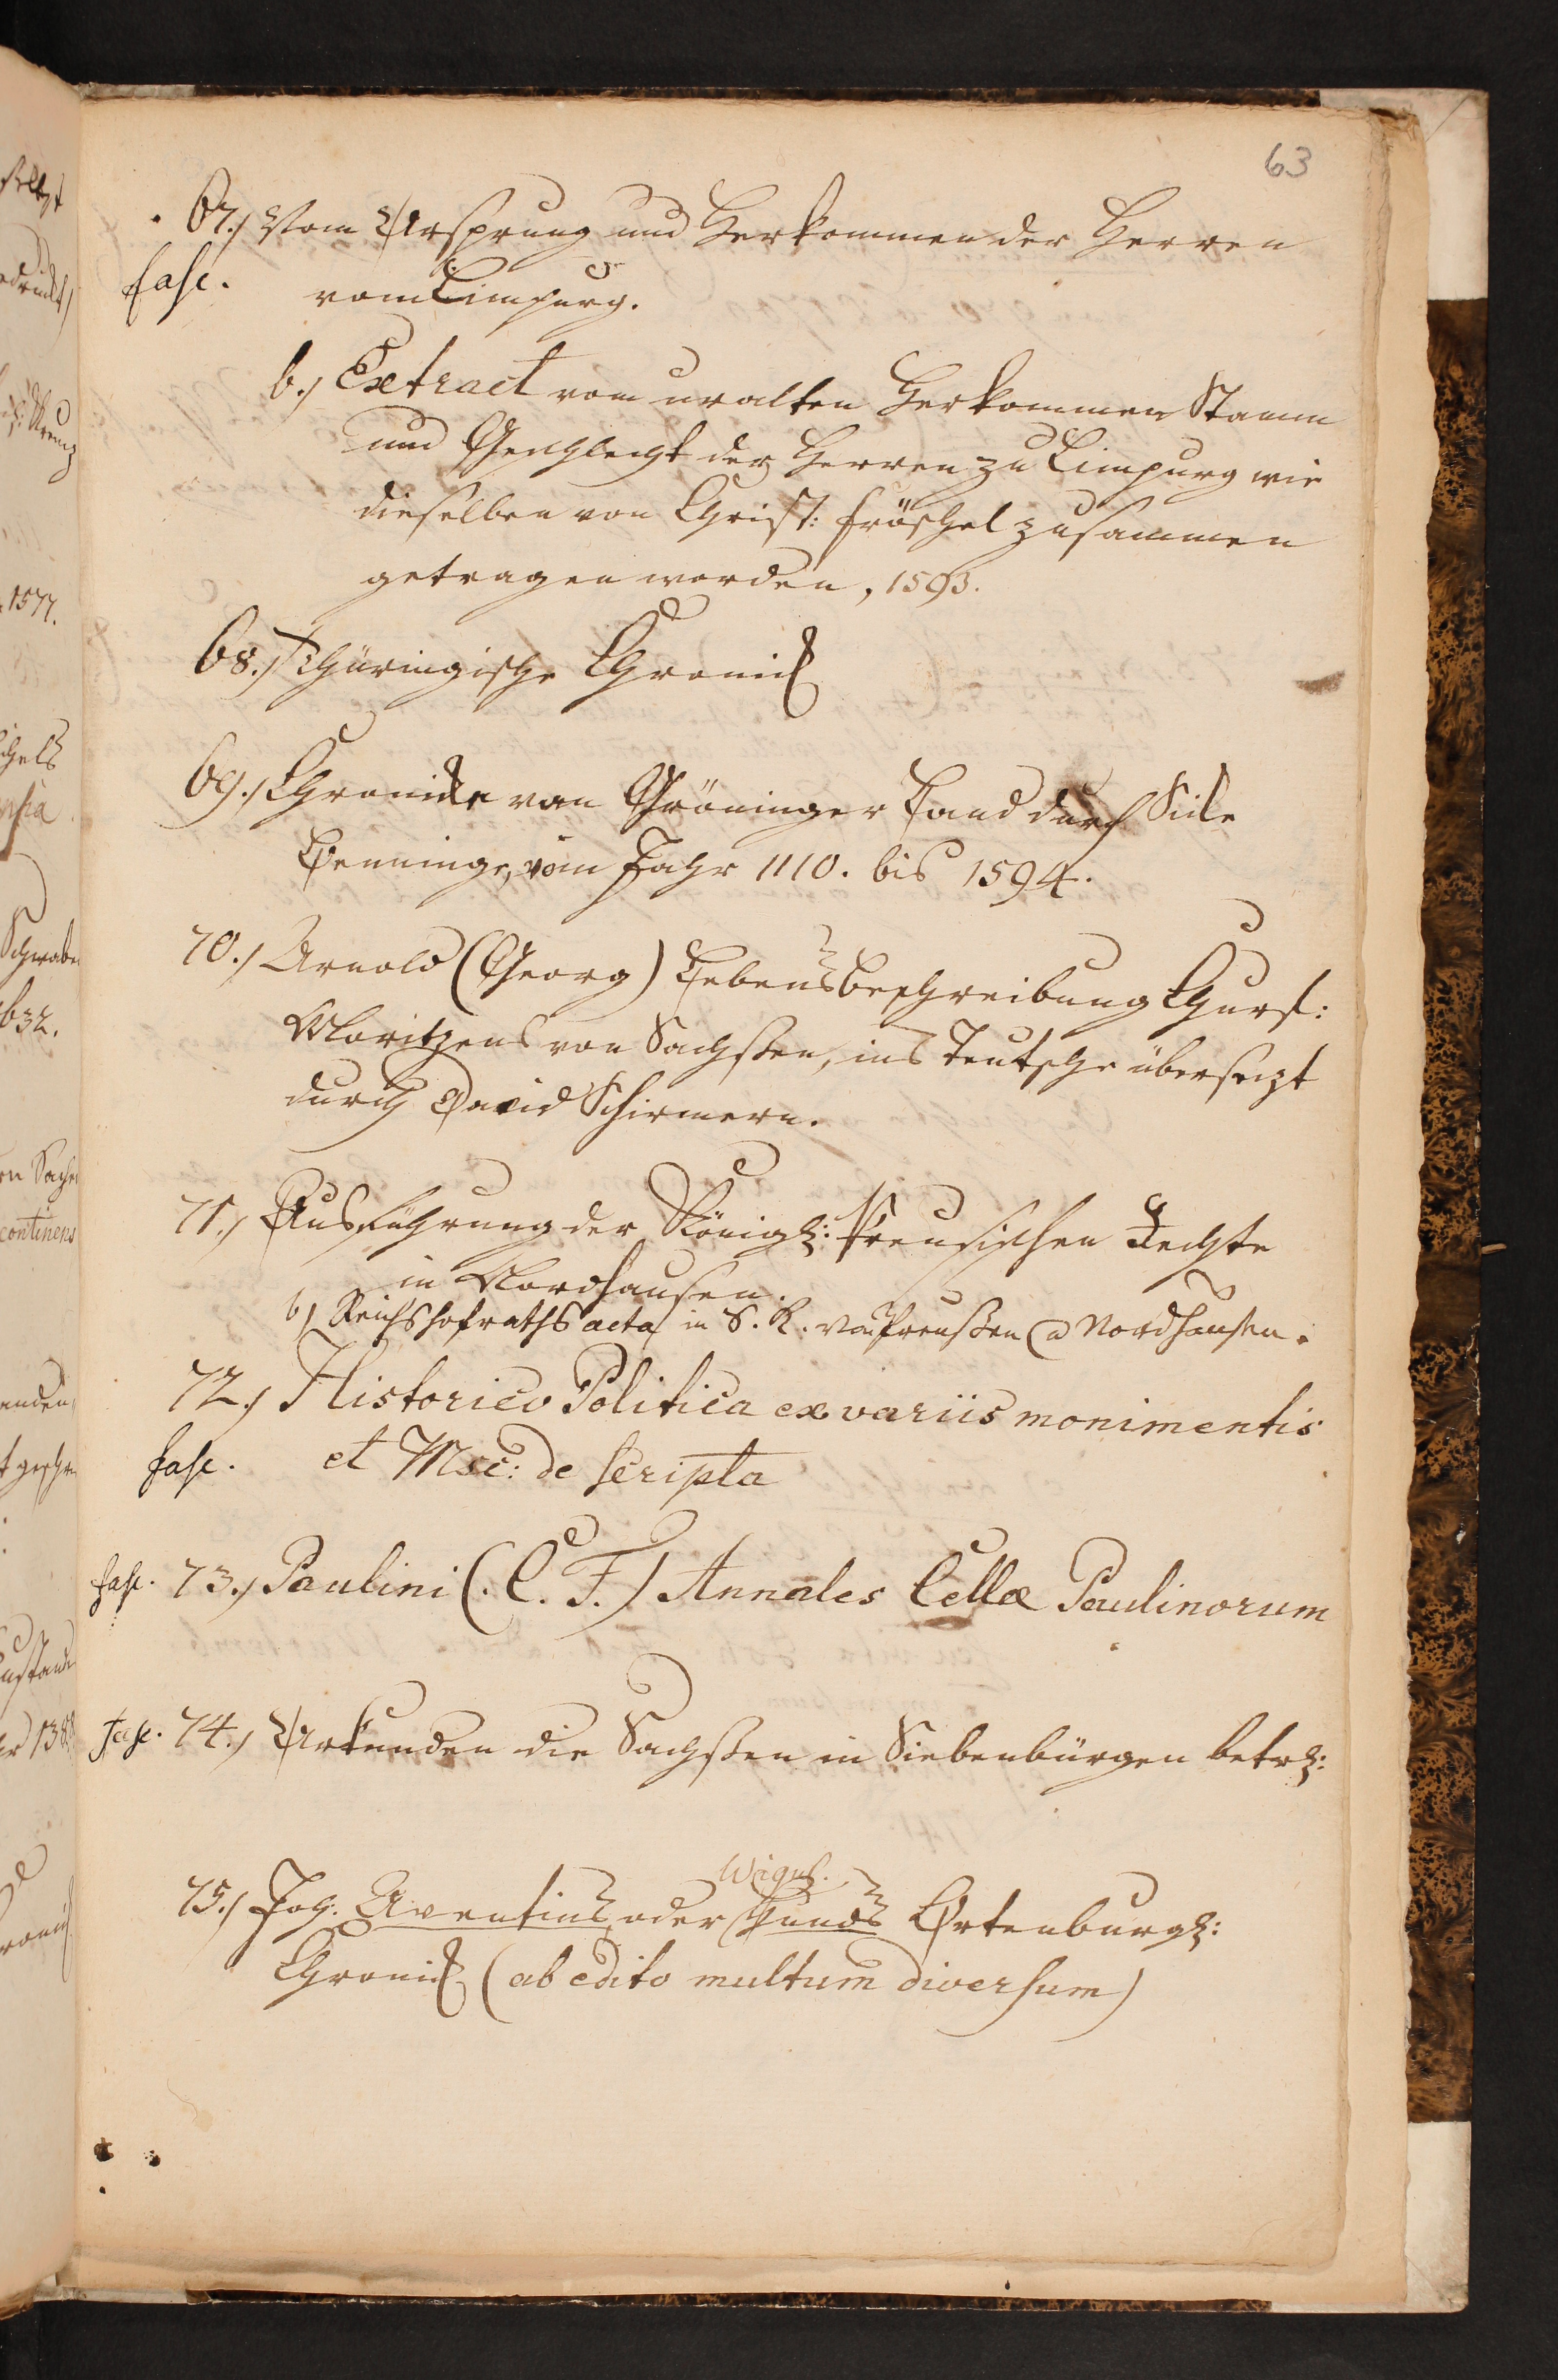 63
67.) Vom Ursprung und Herkommen der Herren
fasc. vom Limpurg.
b.) Extract vom uralten Herkommen Stamm
und Geschlecht der Herren zu Limpurg wie
dieselben von Christ: Fröschel zusammen
getragen worden, 1593.
68.) Thüringische Chronick
69.) Chronicke van Gröninger Land durch Sicke
Benninge, vom Jahr 1110. bis 1594.
70.) Arnold (Georg) Lebensbeschreibung Churf:
Moritzens von Sachßen, ins Teutsche übersezt
durch David Schirmern.
71.) Ausführung der Königl: Preusischen Rechte
in Nordhausen.
b) Reichshofraths acta in S. K. von Preußen Nordhausen.
72.) Historico Politica ex variis monimentis
fasc. et Msc: de scripta
fasc. 73.) Paulini (C. F.) Annales Cellæ Paulinorum
fasc. 74.) Urkunden die Sachßen in Siebenbürgen betrl:
Wigul.
75.) Joh. Aventins, oder Hunds Ortenburgl:
Chronick (ab edito multum diversum)